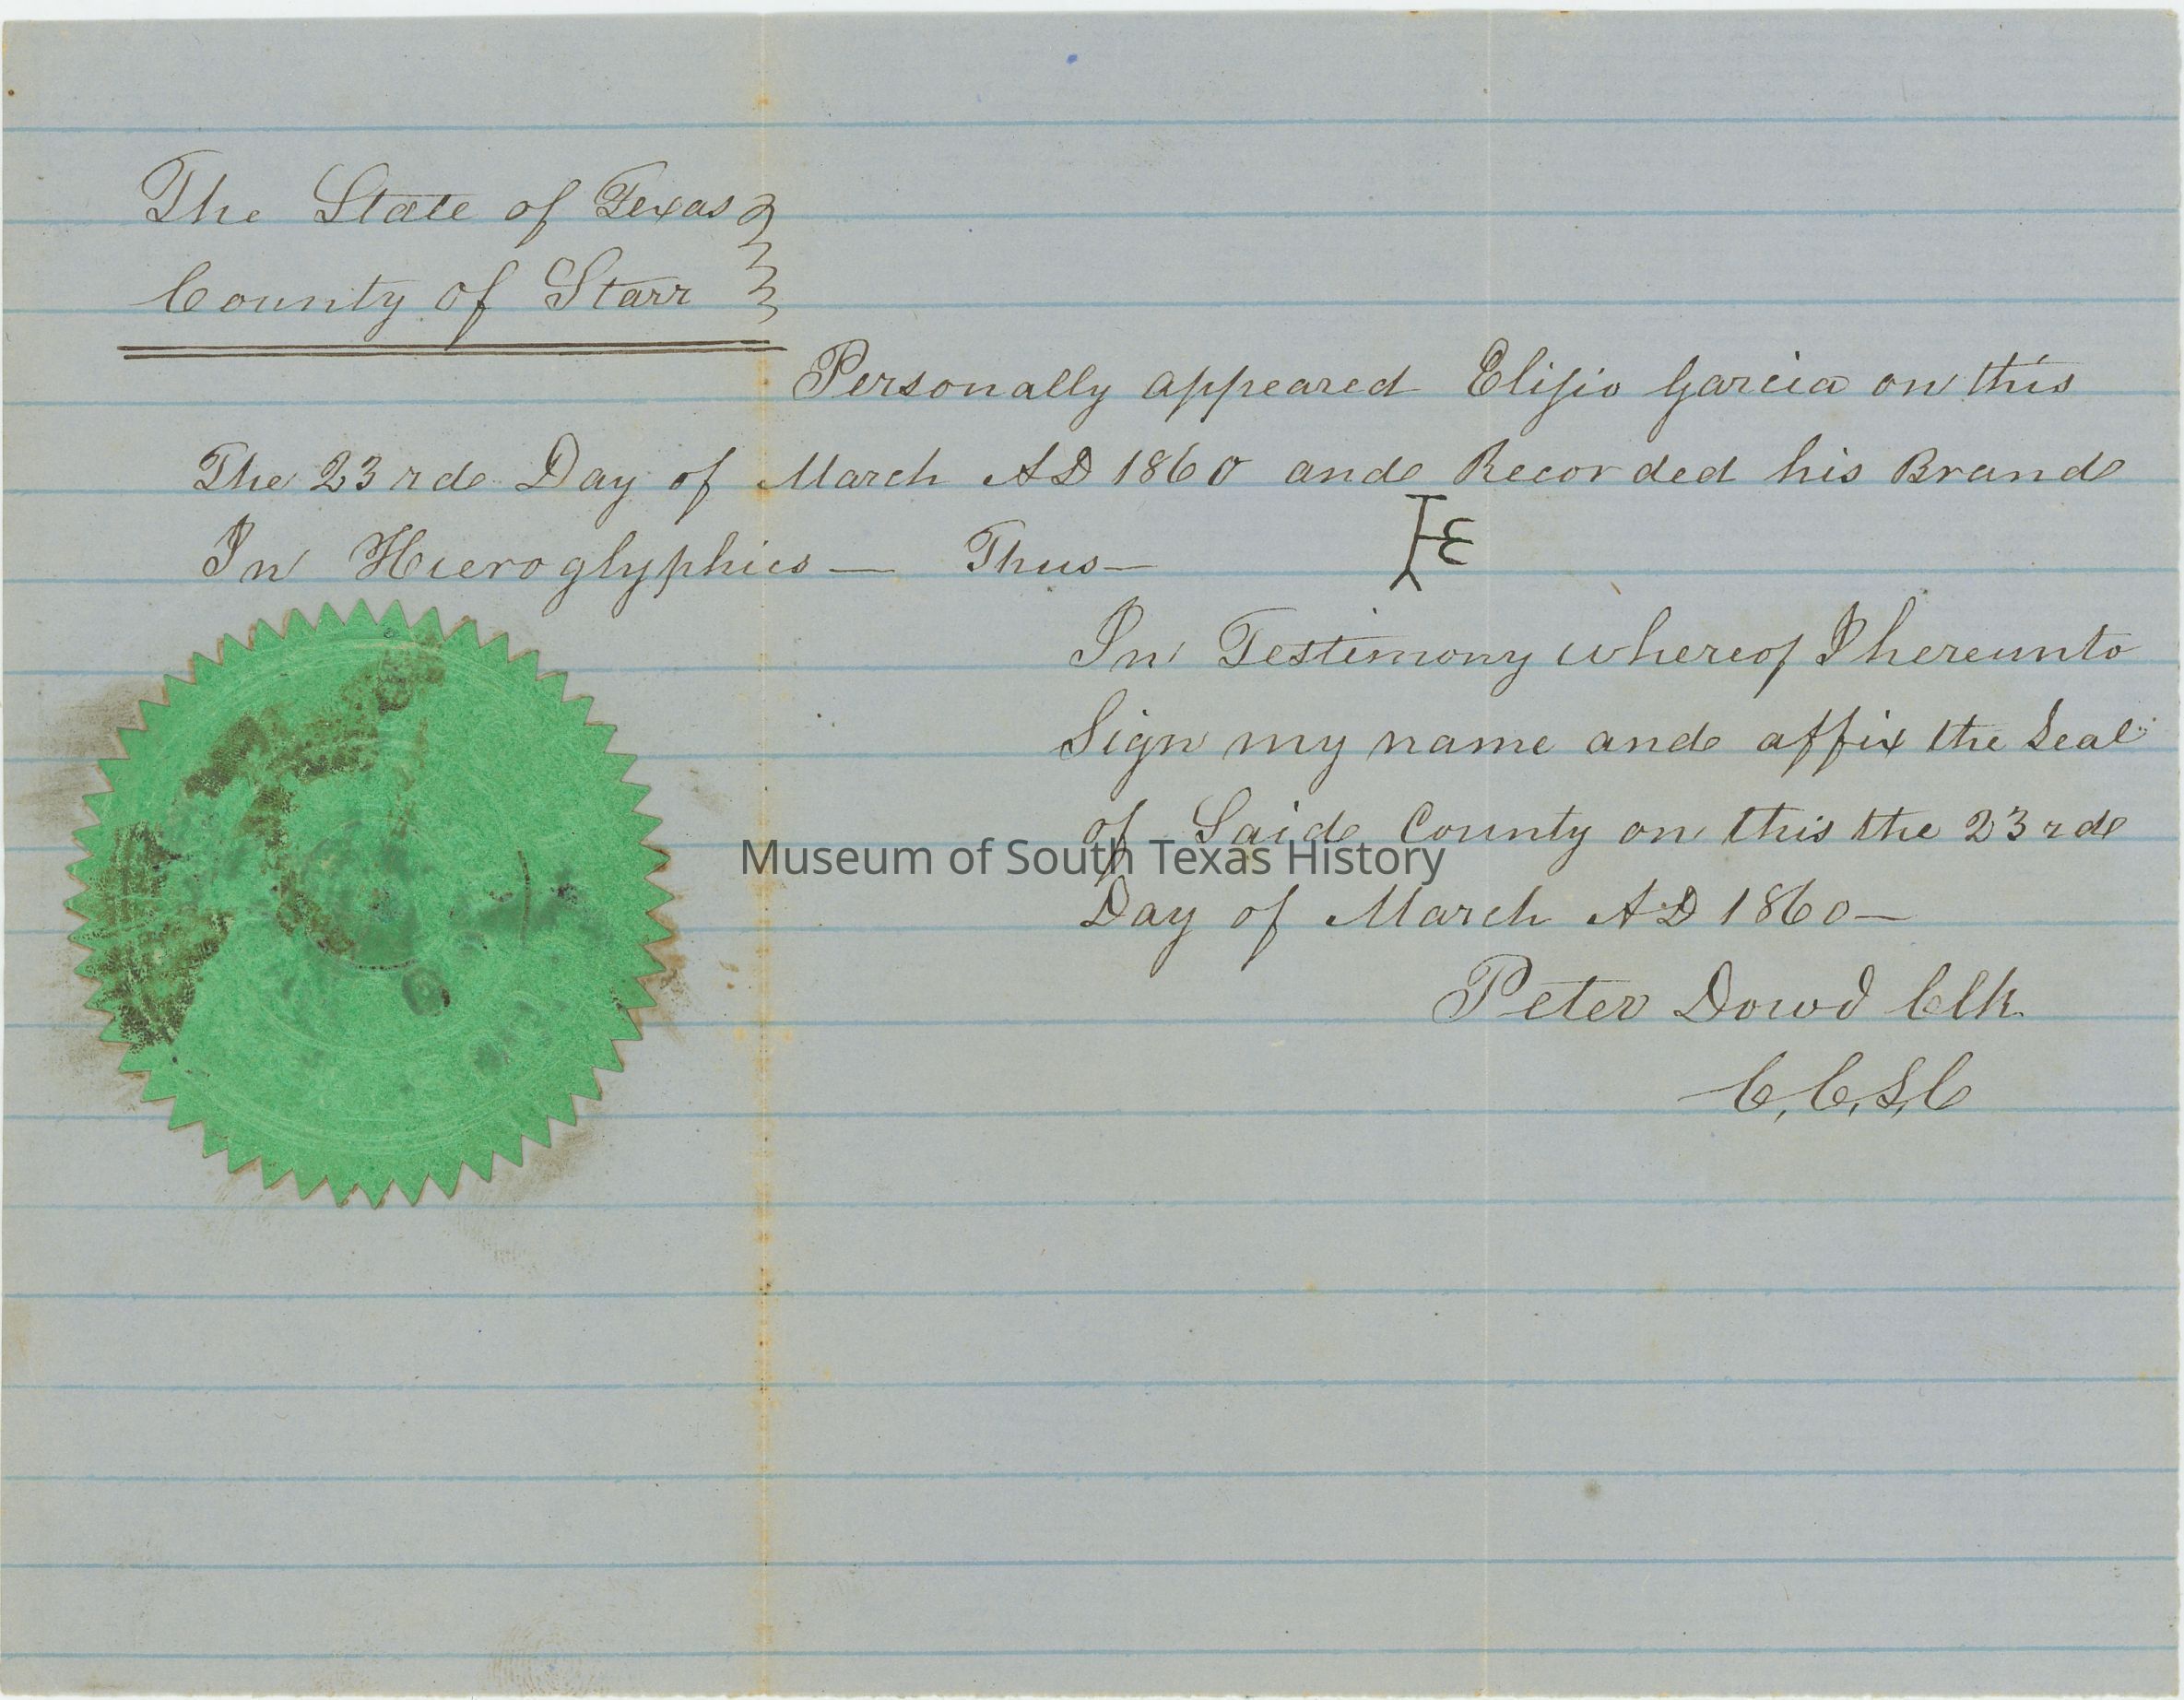 The State of Texas
County of Starr
Personally appeared Elijio Garcia on this
The 23rd Day of March AD 1860 and Recorded his Brand
In Hieroglyphics — Thus —
In Testimony whereof I hereunto
Sign my name and affix the Seal
of Said County on this the 23rd
Museum of South Texas History
Day of March AD 1860 —
Peter Dowd Clk.
C,C,S,C